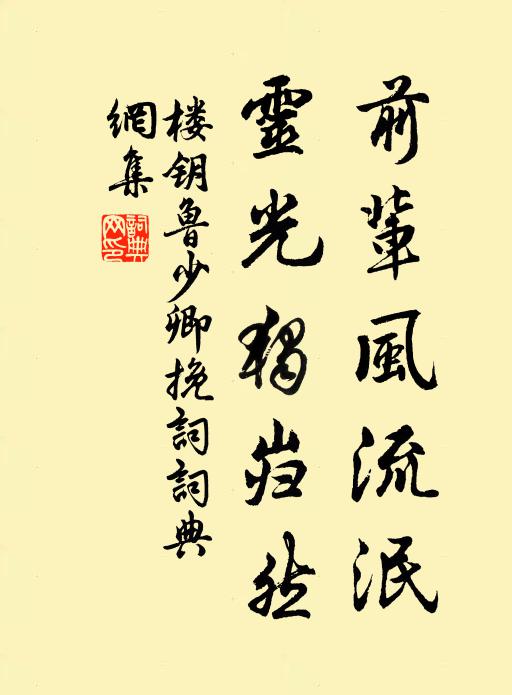 前輩風流泯
靈光獨岿然
楼钥魯少卿挽詞詞典
網集
詞典
网印